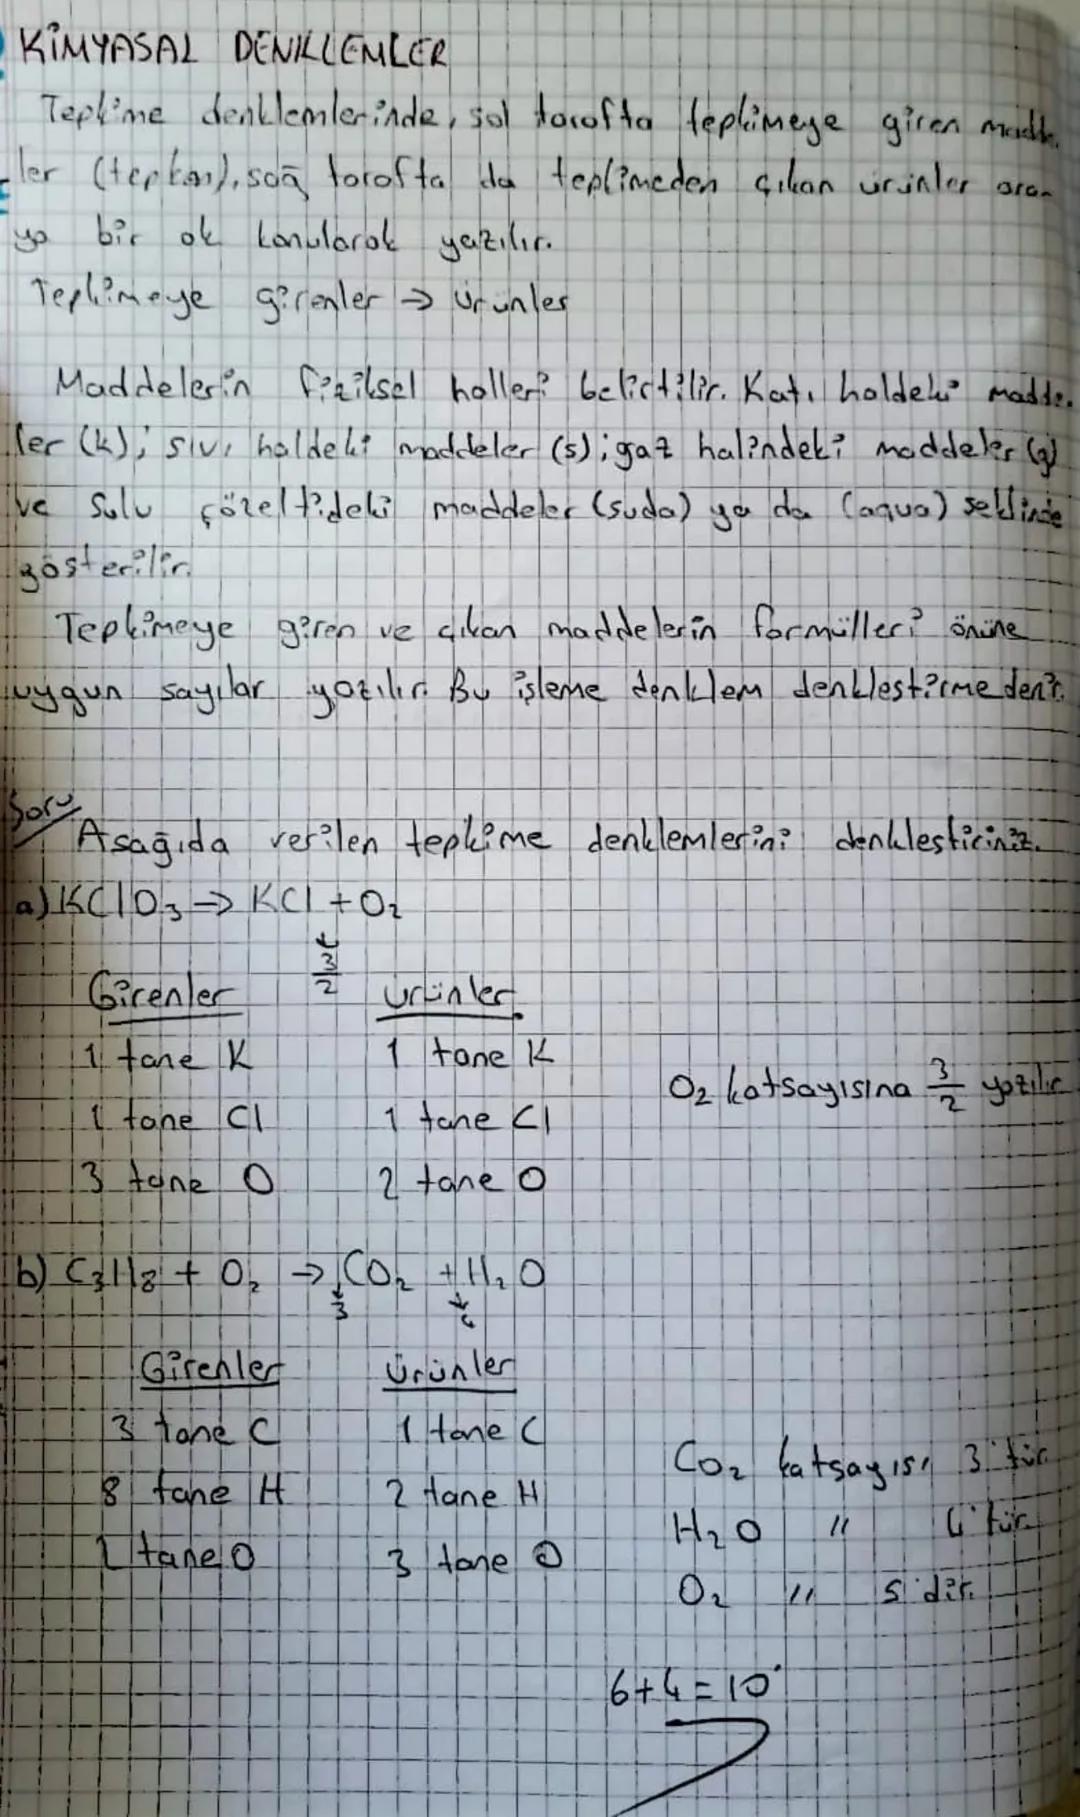 KİMYASAL DENKLEMLER
Tepkime denklemlerinde, sol tarafta tepkimeye giren madde
ler (tepkan), sağ tarafta da tepkimeden çıkan ürünler ara-
ya bir ok konularak yazılır.
Tepkimeye girenler → ürünler
Maddelerin fiziksel halleri belirtilir. Katı haldeki madde-
ler (k); sıvı haldeki maddeler (s); gaz halindeki maddeler (g)
ve sulu çözeltideki maddeler (suda) ya da (aqua) şeklinde
gösterilir.
Tepkimeye giren ve çıkan maddelerin formülleri önüne
uygun sayılar yazılır. Bu işleme denklem denkleştirme denir.
Soru
Aşağıda verilen tepkime denklemlerini denkleştiriniz.
a) KClO₃ → KCl + O₂
3/2
Girenler ürünler
1 tane K 1 tane K
O₂ katsayısına 3/2 yazılır
1 tane Cl 1 tane Cl
3 tane O 2 tane O
b) C₃H₈ + O₂ → CO₂ + H₂O
3 4
Girenler ürünler
3 tane C 1 tane C
CO₂ katsayısı 3'tür
8 tane H 2 tane H
H₂O " 4'tür
2 tane O 3 tane O
O₂ " 5'dir.
6+4=10